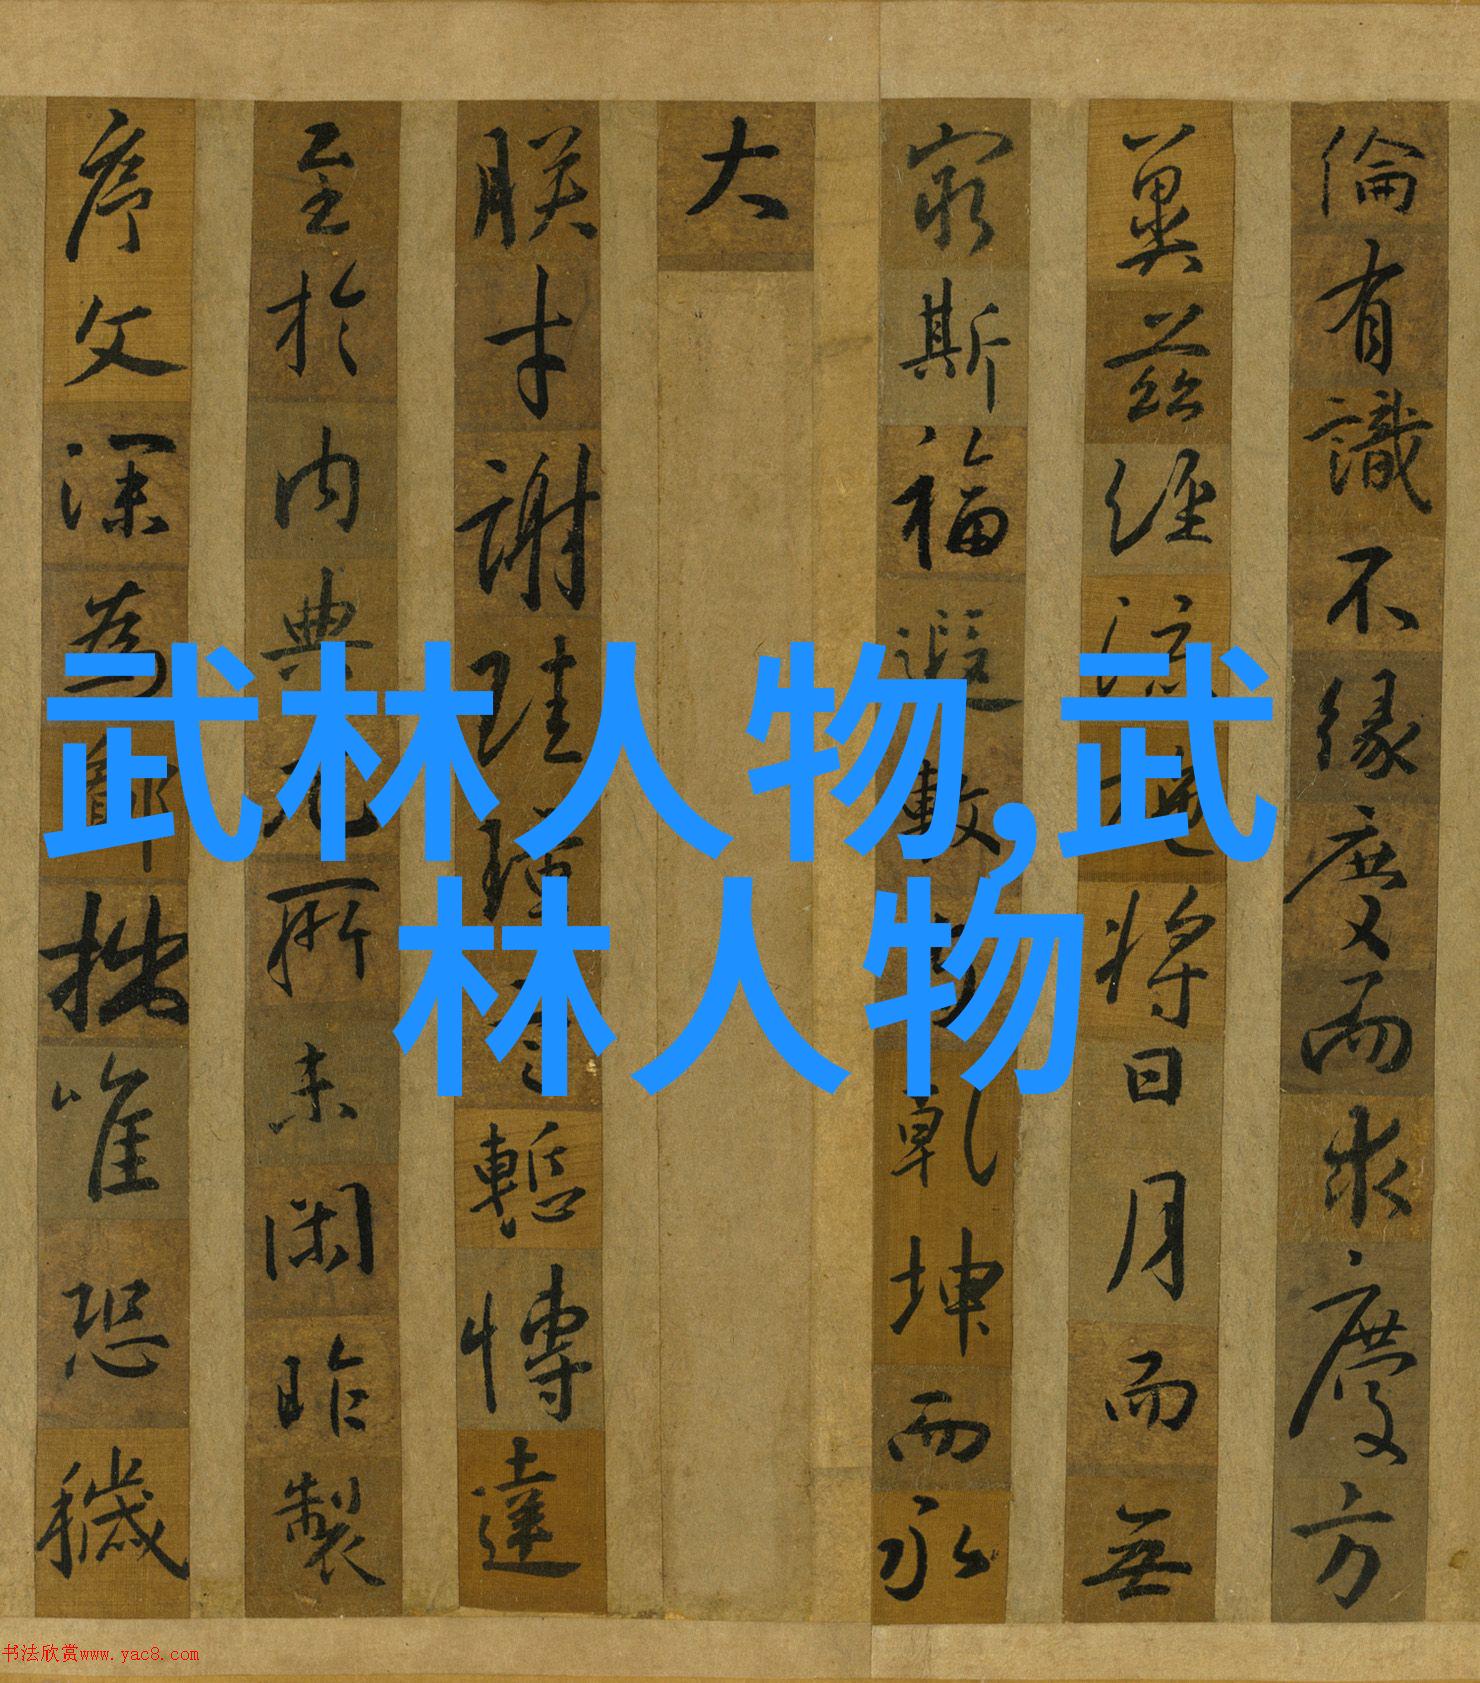 倫有識不緣慶而求慶方
冀茲經流施將日月而無
窮斯福遐敷與乾坤而永
大
朕才謝珪璋言慙博達
至於內典尤所未閑昨製
序文深為鄙拙唯恐穢
武林人物,武
林人物
书法欣赏www.yac8.com